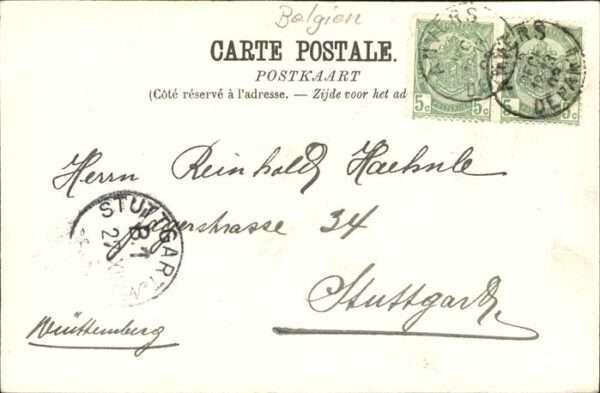 Belgien
CARTE POSTALE.
POSTKAART
(Côté réservé à l'adresse. — Zijde voor het ad
5c 5c
ANVERS
DEPART
ANVERS
DEPART
Herrn Reinhold Haehnle
strasse 34
Stuttgart
Württemberg
STUTTGART